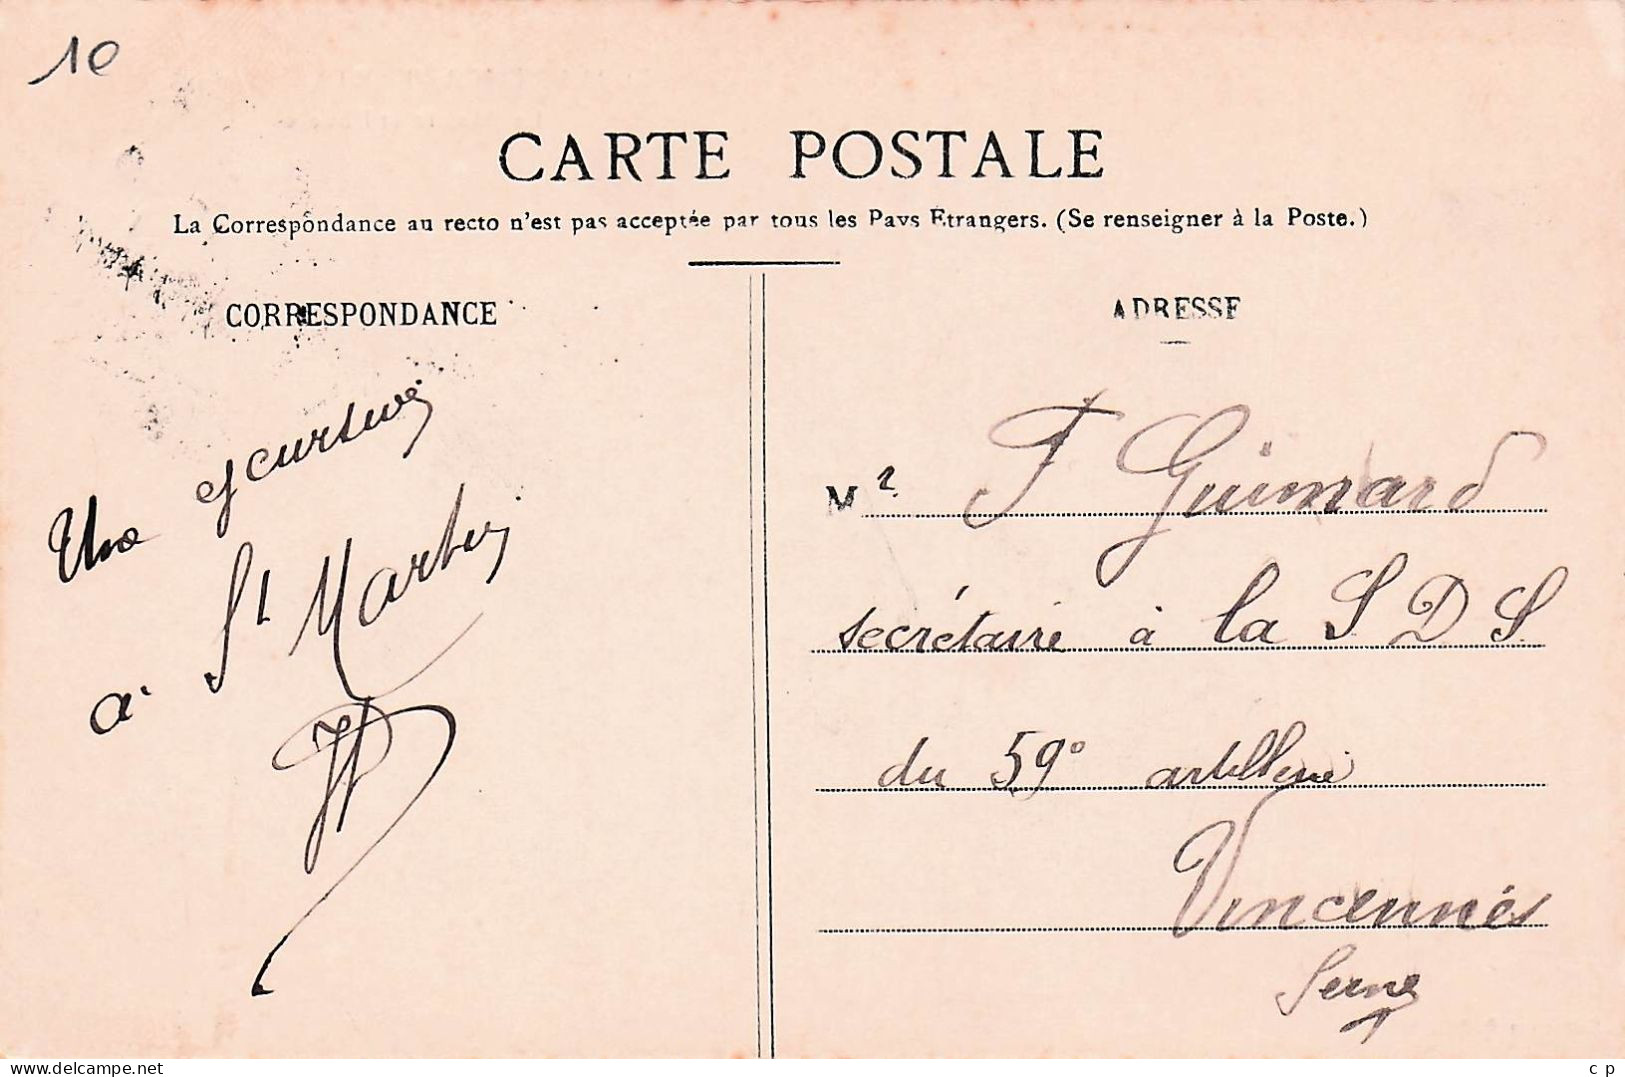 10
CARTE POSTALE
La Correspondance au recto n'est pas acceptée par tous les Pays Etrangers. (Se renseigner à la Poste.)
CORRESPONDANCE
ADRESSE
Une
à St Martin
Mr F Guimard
secrétaire à la S D S
du 59e artillerie
Vincennes
Seine
www.delcampe.net
c p